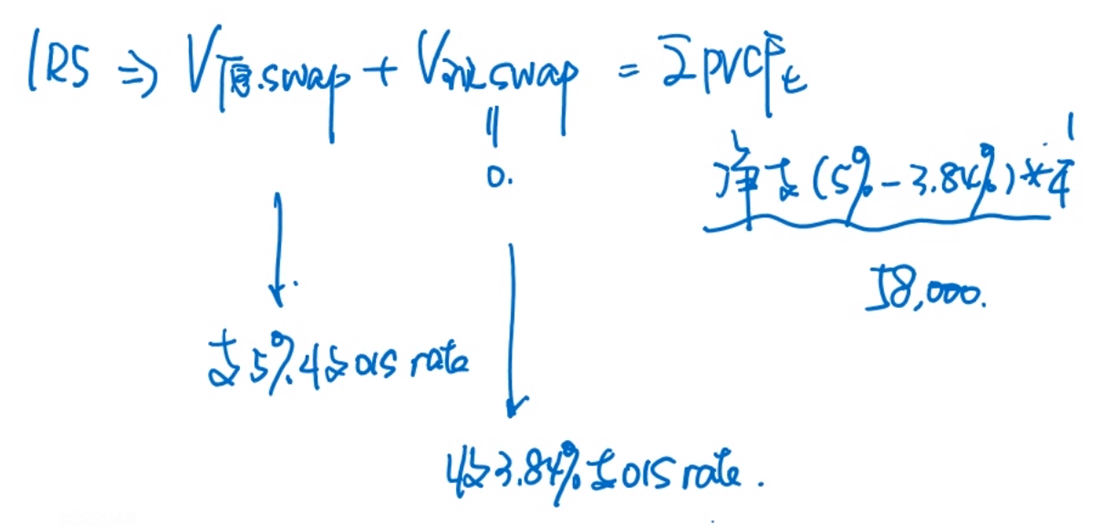 IRS ⇒ V原.swap + V对swap = ΣPVCFt
||
0.
净支(5%-3.84%)*1/4
58,000.
支5%.收ois rate
收3.84%支OIS rate.